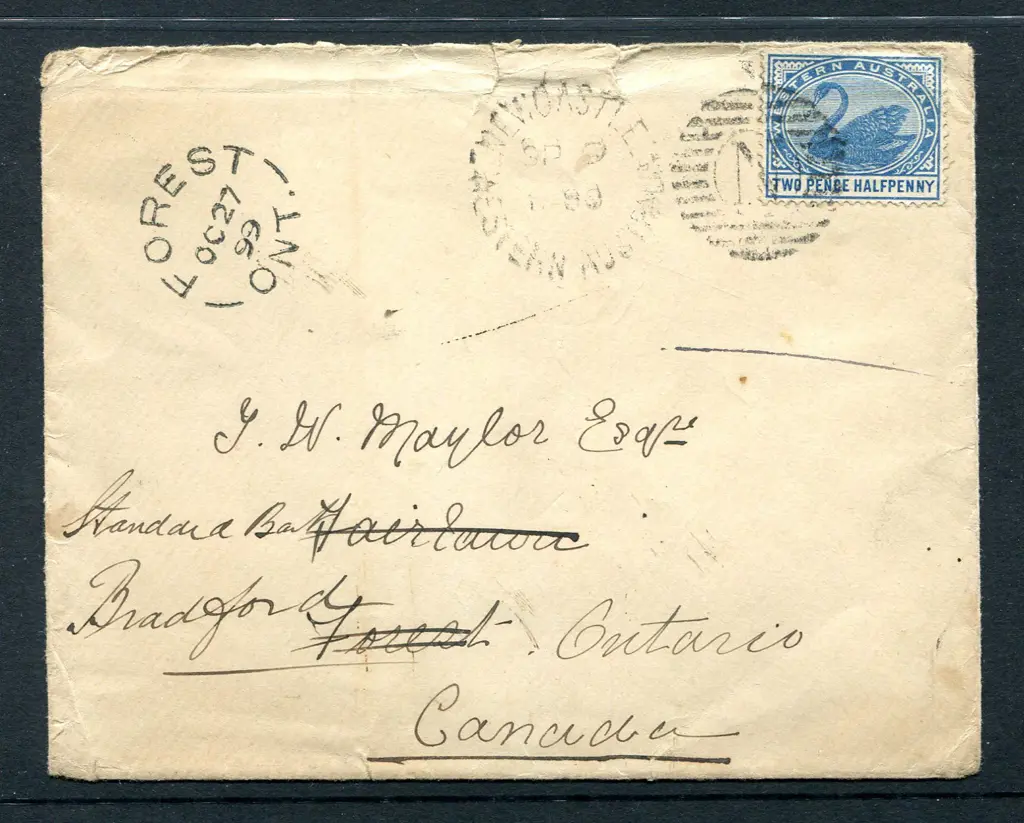 WESTERN AUSTRALIA
TWO PENCE HALFPENNY
NEWCASTLE
SP 9
99
WESTERN AUSTRALIA
FOREST
OC 27
99
ONT.
J. W. Maylor Esqre
Standard Bank Fairlawn
Bradford
Forest. Ontario
Canada